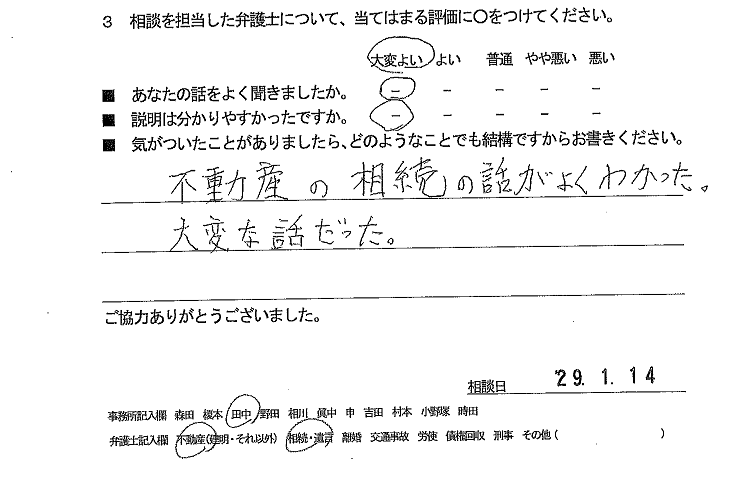 3 相談を担当した弁護士について、当てはまる評価に○をつけてください。
大変よい よい 普通 やや悪い 悪い
■ あなたの話をよく聞きましたか。 － － － － －
■ 説明は分かりやすかったですか。 － － － － －
■ 気がついたことがありましたら、どのようなことでも結構ですからお書きください。
不動産の相続の話がよくわかった。
大変な話だった。
ご協力ありがとうございました。
相談日 '29. 1. 14
事務所記入欄 森田 榎本 田中 野田 相川 眞中 申 吉田 村本 小野塚 時田
弁護士記入欄 不動産(建明・それ以外) 相続・遺言 離婚 交通事故 労使 債権回収 刑事 その他( )